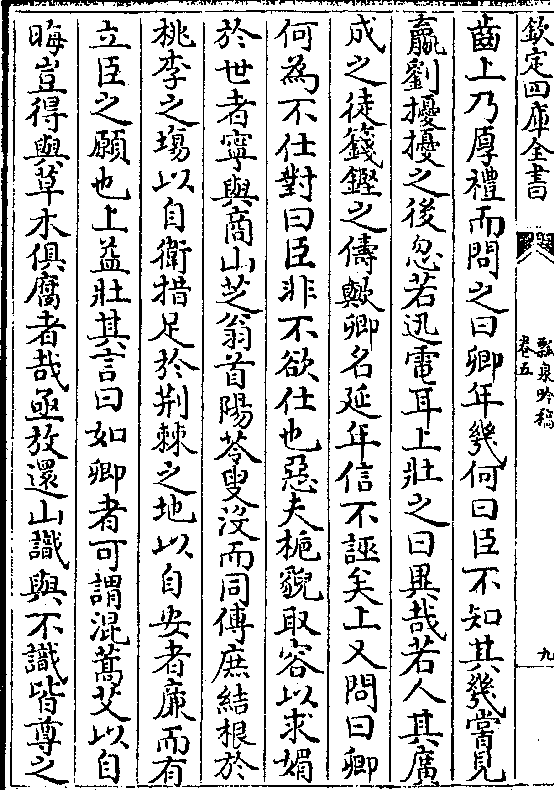 欽定四庫全書
瓢泉吟稿
卷五
九
齒上乃厚禮而問之曰卿年幾何曰臣不知其幾嘗見
嬴劉擾擾之後忽若迅電耳上壯之曰異哉若人其廣
成之徒籛鏗之儔歟卿名延年信不誣矣上又問曰卿
何為不仕對曰臣非不欲仕也惡夫梔貌取容以求媚
於世者寧與商山芝翁首陽苓叟沒而同傳庶結根於
桃李之塲以自衛措足於荆棘之地以自安者廉而有
立臣之願也上益壯其言曰如卿者可謂混蒿艾以自
晦豈得與草木俱腐者哉亟放還山識與不識皆尊之